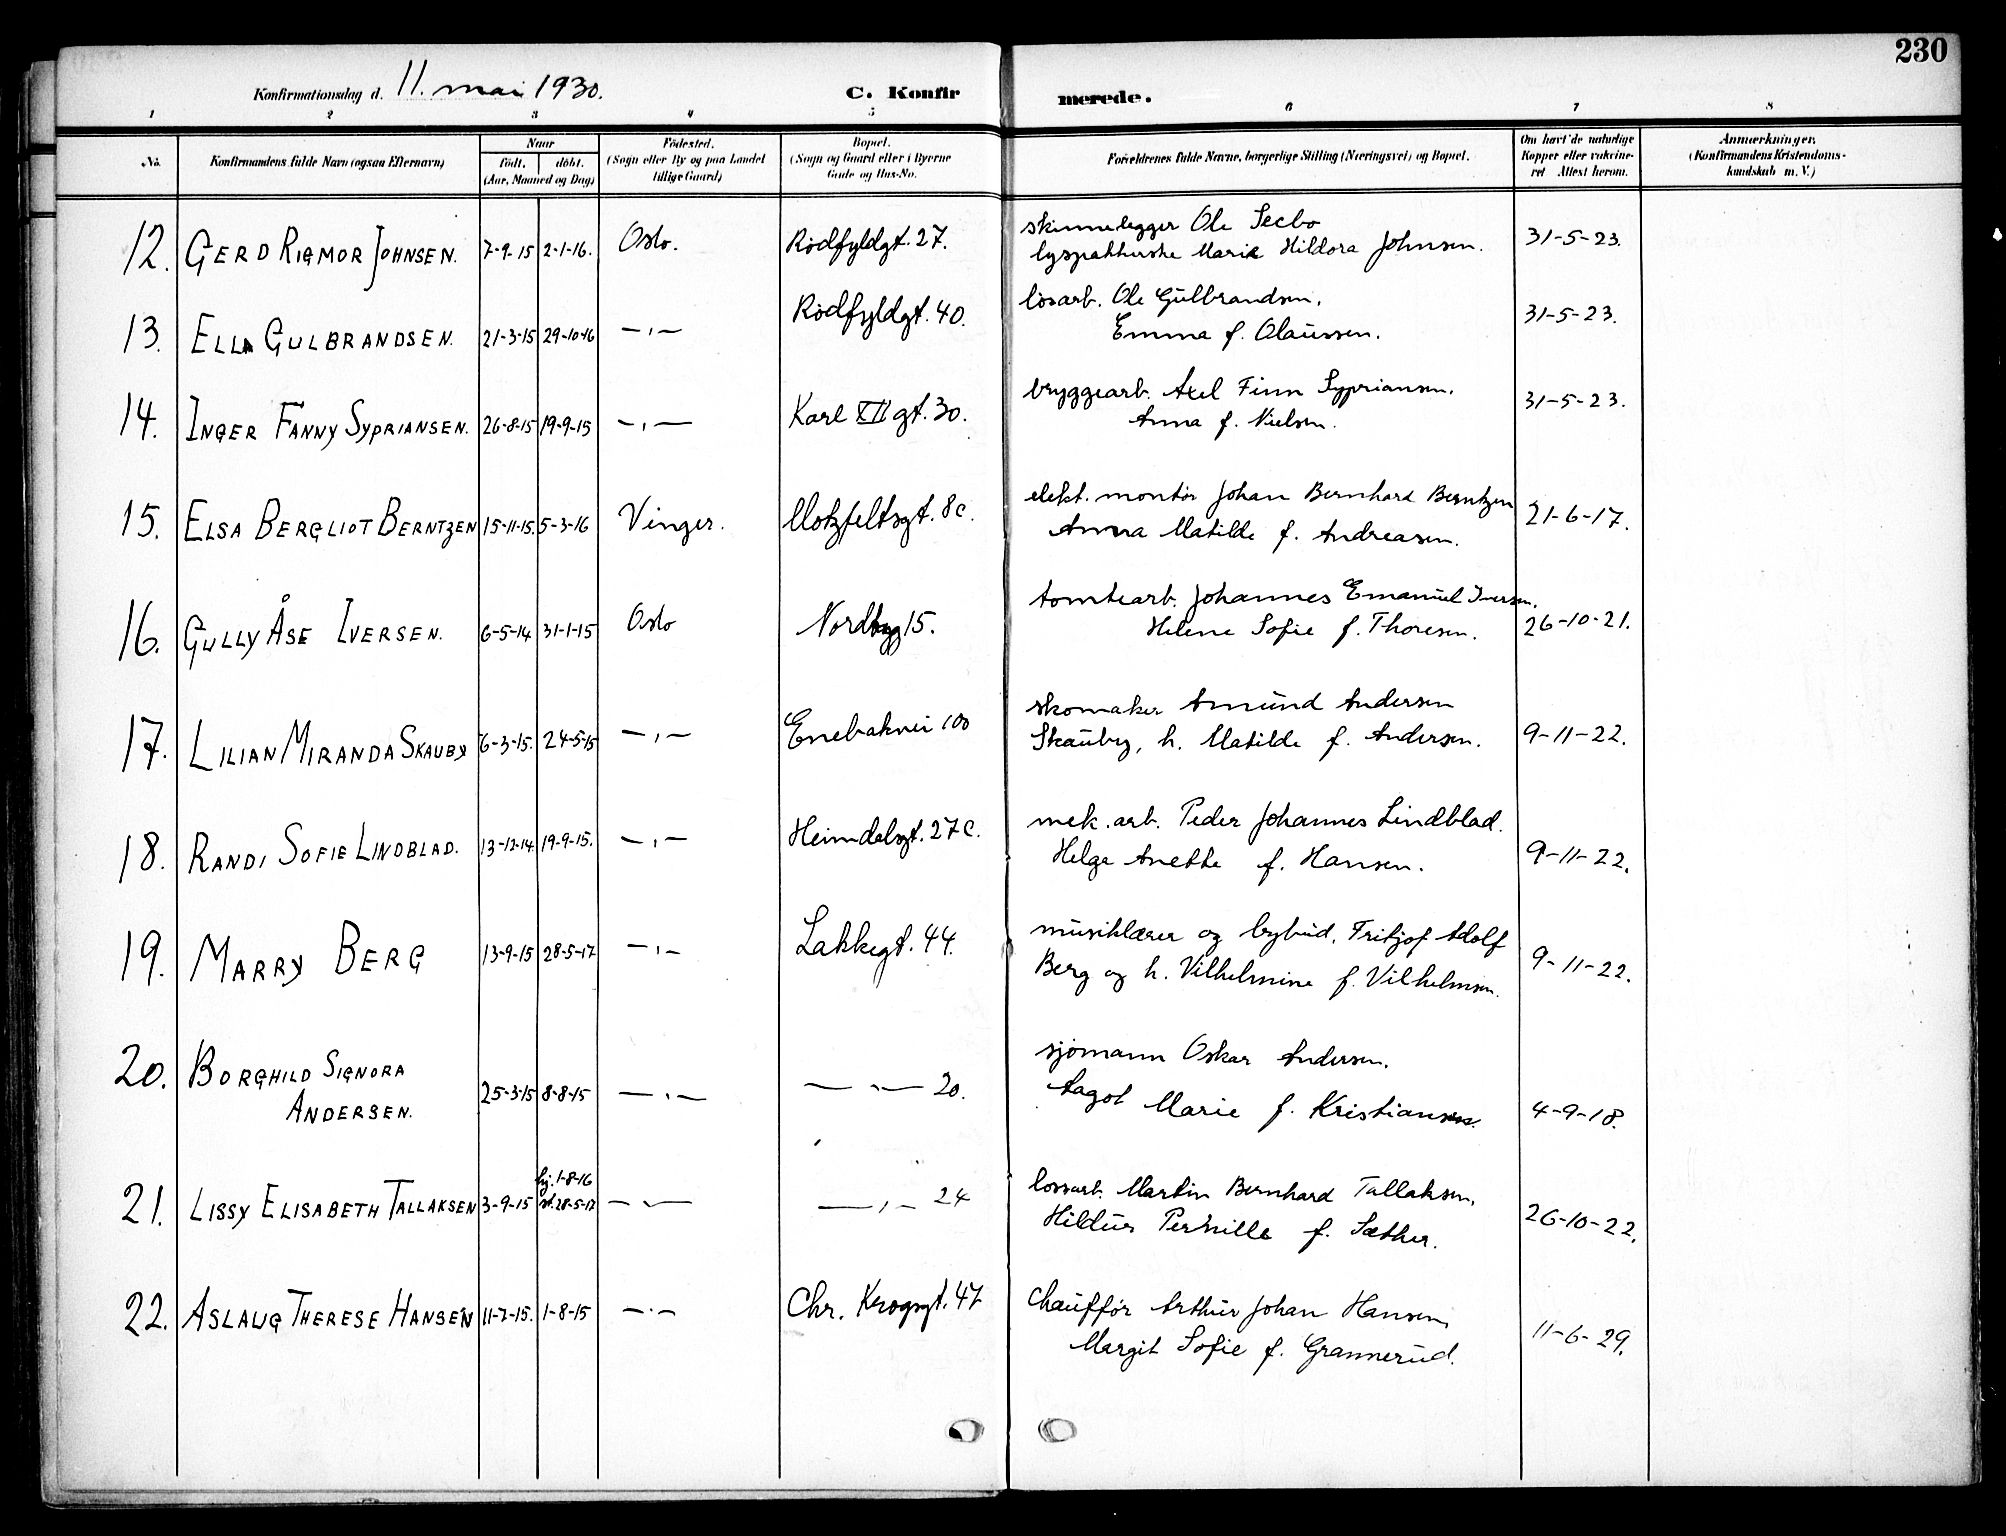 230
Konfirmationsdag d. 11. mai 1930.
C. Konfirmerede.
1 2 3 4 5 6 7 8
No. Konfirmandens fulde Navn (ogsaa Efternavn) Naar født, døbt. (Aar, Maaned og Dag) Fødested. (Sogn eller By og paa Landet tillige Gaard) Bopæl. (Sogn og Gaard eller i Byerne Gade og Hus-No. Forældrenes fulde Navne, borgerlige Stilling (Næringsvei) og Bopæl. Om havt de naturlige Kopper eller vakcineret. Attest herom. Anmærkninger. (Konfirmandens Kristendomskundskab m. V.)
12. GERD RIGMOR JOHNSEN. 7-9-15 2-1-16. Oslo. Rødfyldgt. 27. skinnelegger Ole Seebo 31-5-23.
Marie Hildora Johnsen.
13. ELLA GULBRANDSEN. 21-3-15 29-10-16 —„— Rødfyldgt. 40. løsarb. Ole Gulbrandsen, 31-5-23.
Emma f. Olaussen.
14. INGER FANNY SYPRIANSEN. 26-8-15 19-9-15 —„— Karl XII gt. 30. bryggearb. Axel Finn Sypriansen. 31-5-23.
Anna f. Nielsen.
15. ELSA BERGLIOT BERNTZEN 15-11-15. 5-3-16 Vinger. Motzfeltsgt. 8c. elekt. montør Johan Bernhard Berntzen 21-6-17.
Anna Matilde f. Andreasen.
16. GULLY ÅSE IVERSEN. 6-5-14 31-1-15 Oslo Nordbyg 15. tomtearb. Johannes Emanuel Iversen. 26-10-21.
Helene Sofie f. Thoresen.
17. LILIAN MIRANDA SKAUBY 6-3-15. 24-5-15 —„— Enebakvei 100 skomaker Amund Andersen
Skauby, h. Matilde f. Andersen. 9-11-22.
18. RANDI SOFIE LINDBLAD. 13-12-14 19-9-15. —„— Heimdalsgt. 27 C. mek. arb. Peder Johannes Lindblad.
Helga Anette f. Hansen. 9-11-22.
19. MARRY BERG 13-9-15 28-5-17 —„— Lakkegt. 44. musiklærer og bybud, Fritjof Adolf
Berg og h. Vilhelmine f. Vilhelmsen. 9-11-22.
20. BORGHILD SIGNORA
ANDERSEN. 25-3-15 8-8-15 —„— —„— 20. sjømann Oskar Andersen.
Aagot Marie f. Kristiansen. 4-9-18.
21. LISSY ELISABETH TALLAKSEN 3-9-15 hj. 1-8-16
st. 28-5-17 —„— —„— 24 løssarb. Martin Bernhard Tallaksen,
Hildur Pernille f. Sæther. 26-10-22.
22. ASLAUG THERESE HANSEN 11-7-15. 1-8-15 —„— Chr. Krogsgt. 47 Chauffør Arthur Johan Hansen,
Margit Sofie f. Grannerud. 11-6-29.